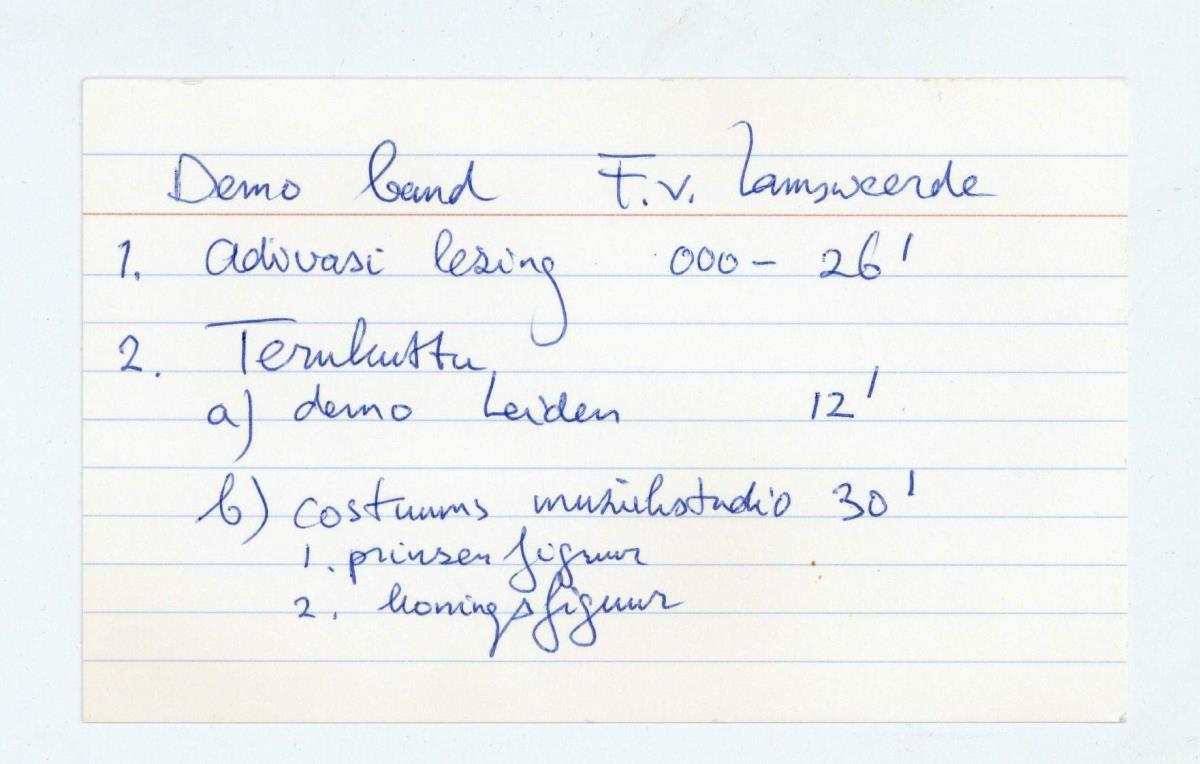 Demo band F.v. Lamsweerde
1. Adivasi lezing 000 - 26'
2. Terukuttu
a) demo Leiden 12'
b) costuums muziekstudio 30'
1. prinsen figuur
2. koningsfiguur